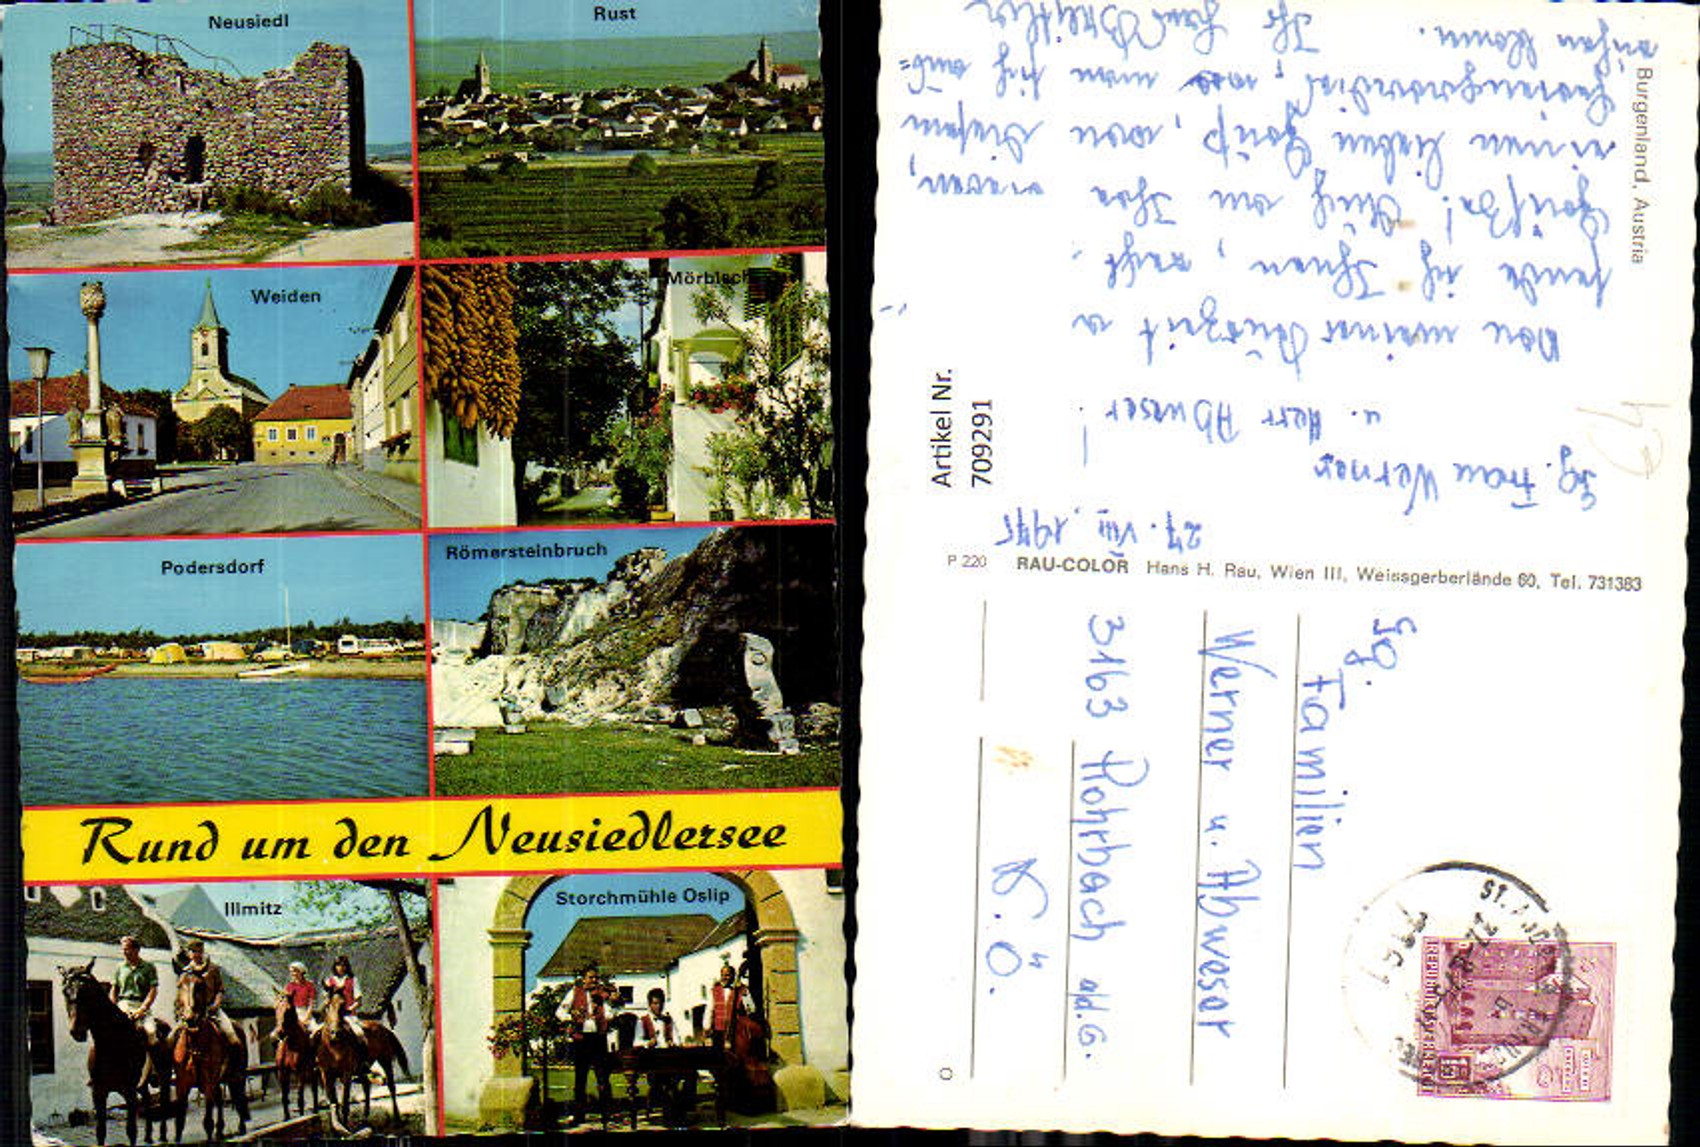 Neusiedl
Rust
Weiden
Mörbisch
Podersdorf
Römersteinbruch
Rund um den Neusiedlersee
Illmitz
Storchmühle Oslip
Burgenland, Austria
Artikel Nr.
709291
27. VIII. 1975
Sg. Frau Werner
u. Herr Abweser!
Von meiner Kurzeit
sende ich Ihnen, recht
Grüße! Auch an Ihre
einen lieben Gruß, von diesem
man sich aus=
ruhen kann. Ihr
P 220 RAU-COLOR Hans H. Rau, Wien III, Weissgerberlände 60, Tel. 731383
Sg.
Familien
Werner u. Abweser
3163 Rohrbach a/d.G.
N.Ö.
REPUBLIK ÖSTERREICH